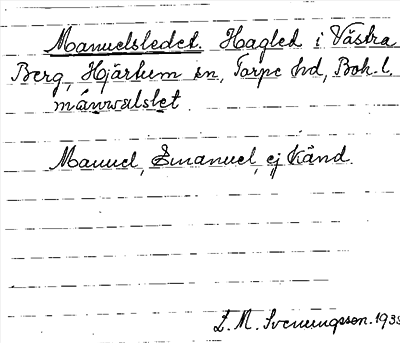 Manuelsledet. Hagled i Västra
Berg, Hjärtum sn, Torpe hd, Boh. l.
mánnwalslet
Manuel, Emanuel, ej känd.
L. M. Svenungsson. 1933